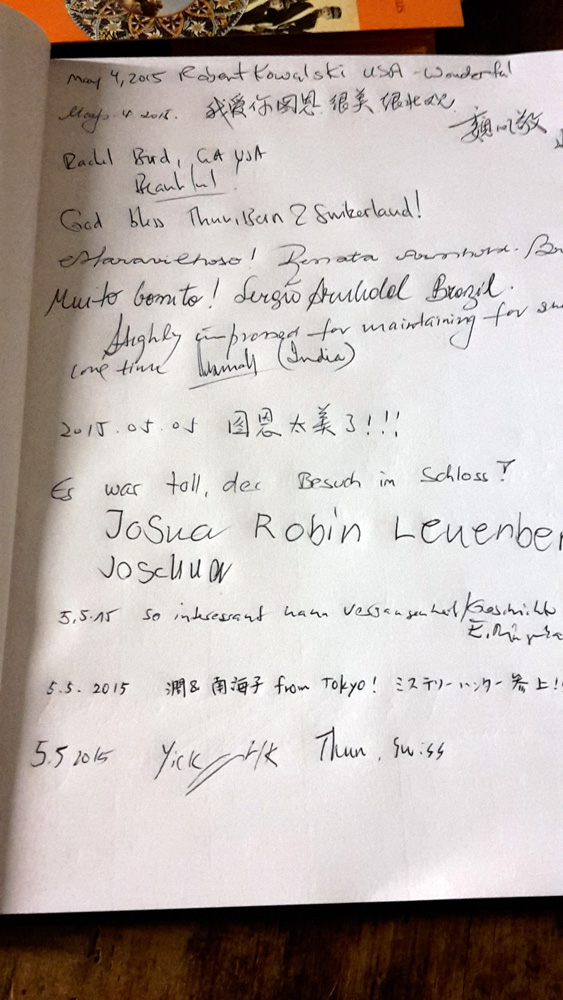 May 4, 2015 Robert Kowalski USA - Wonderful
May 4. 2015. 我爱你图恩 很美 很壮观
Rachel Bird, GA USA
Beautiful
God bless Thun, Bern & Switzerland!
Maravilhoso! Renata
Muito bonito! Sergio Brazil.
Highly impressed for maintaining for
long time (India)
2015.05.05 图恩太美了!!!
Es war toll, der Besuch im Schloss!
Josua Robin Leuenber
Joschua
5.5.15 So interessant kann Vergangenheit/Geschichte
5.5.2015 潤& 南海子 from Tokyo! ミステリーハンター参上!!
5.5 2015 Yick HK Thun, Swiss